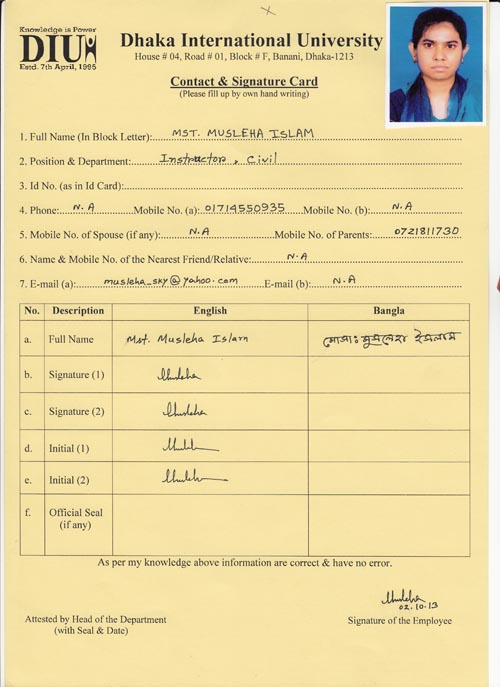 Knowledge is Power
DIU
Estd. 7th April, 1995
Dhaka International University
House # 04, Road # 01, Block # F, Banani, Dhaka-1213
Contact & Signature Card
(Please fill up by own hand writing)
1. Full Name (In Block Letter): MST. MUSLEHA ISLAM
2. Position & Department: Instructor, Civil
3. Id No. (as in Id Card):
4. Phone: N.A Mobile No. (a): 01714550935 Mobile No. (b): N.A
5. Mobile No. of Spouse (if any): N.A Mobile No. of Parents: 0721811730
6. Name & Mobile No. of the Nearest Friend/Relative: N.A
7. E-mail (a): musleha_sky@yahoo.com E-mail (b): N.A
No. Description English Bangla
a. Full Name Mst. Musleha Islam মোসাঃ মুসলেহা ইসলাম
b. Signature (1) Musleha
c. Signature (2) Musleha
d. Initial (1)
e. Initial (2)
f. Official Seal
(if any)
As per my knowledge above information are correct & have no error.
Musleha
02.10.13
Attested by Head of the Department Signature of the Employee
(with Seal & Date)